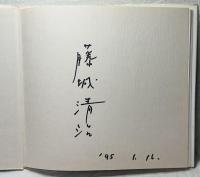 藤城清治
'95 1.16.